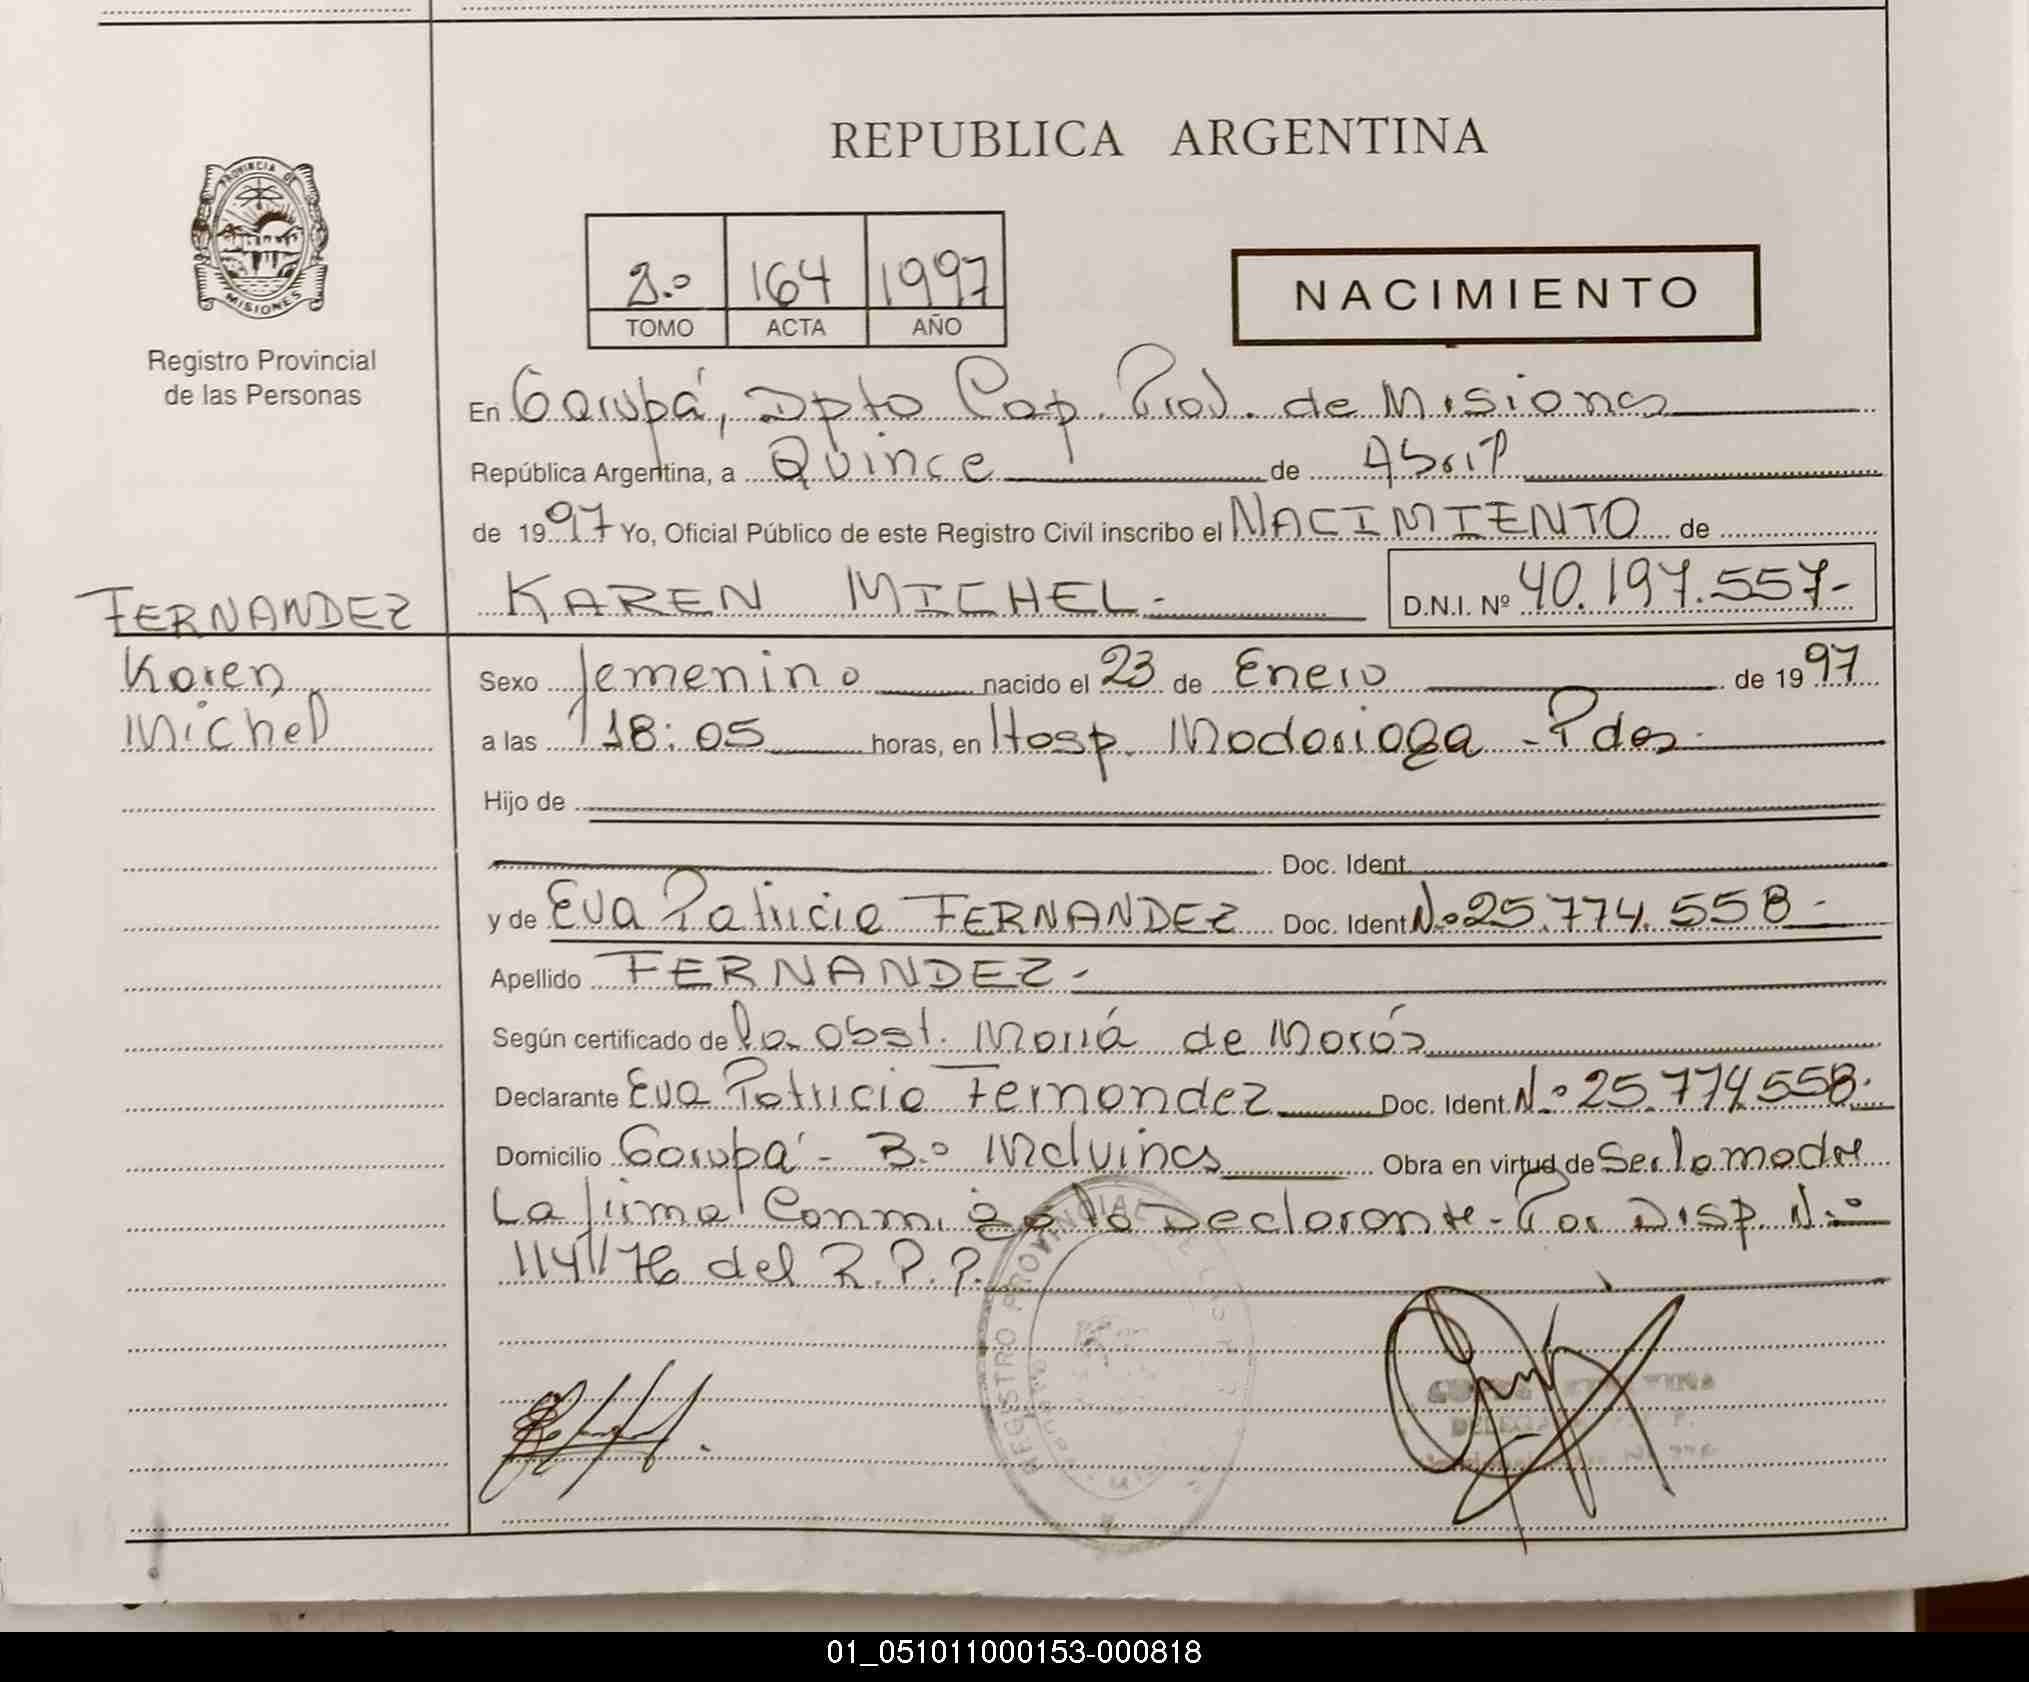 REPUBLICA ARGENTINA
PROVINCIA DE
MISIONES
Registro Provincial
de las Personas
2.º 164 1997
TOMO ACTA AÑO
NACIMIENTO
En Garupá, Dpto Cap. Prov. de Misiones
República Argentina, a Quince de Abril
de 1997 Yo, Oficial Público de este Registro Civil inscribo el NACIMIENTO de
FERNANDEZ KAREN MICHEL.- D.N.I. Nº 40.197.557-
Karen
Michel
Sexo femenino nacido el 23 de Enero de 1997
a las 18:05 horas, en Hosp. Madariaga - Pdas.
Hijo de
Doc. Ident.
y de Eva Patricia FERNANDEZ Doc. Ident N.º 25.774.558-
Apellido FERNANDEZ-
Según certificado de la Obst. María de
Declarante Eva Patricia Fernandez Doc. Ident. N.º 25.774.558.
Domicilio Garupá - B.º Malvinas Obra en virtud de Ser la madre
La firma Conmigo la Declarante - Por Disp. N.º
1141/76 del R.P.P.
REGISTRO PROVINCIAL DE LAS
01_051011000153-000818